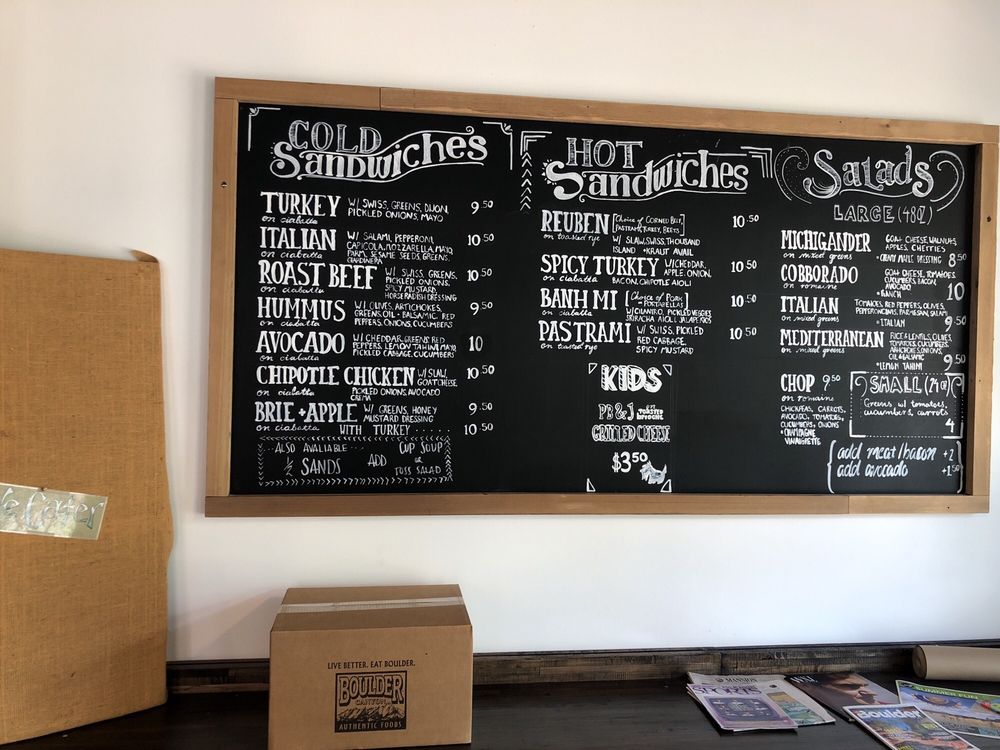 COLD
Sandwiches
TURKEY W/ SWISS, GREENS, DIJON, 9.50
on ciabatta PICKLED ONIONS, MAYO
ITALIAN W/ SALAMI, PEPPERONI, 10.50
on ciabatta CAPICOLA, MOZZARELLA, MAYO,
PARM, SESAME SEEDS, GREENS,
ROAST BEEF W/ SWISS, GREENS, 10.50
on ciabatta PICKLED ONIONS,
SPICY MUSTARD,
HORSERADISH DRESSING
HUMMUS W/ OLIVES, ARTICHOKES, 9.50
on ciabatta GREENS, OIL + BALSAMIC, RED
PEPPERS, ONIONS, CUCUMBERS
AVOCADO W/ CHEDDAR, GREENS, RED 10
on ciabatta PEPPERS, LEMON TAHINI, MAYO,
PICKLED CABBAGE, CUCUMBERS
CHIPOTLE CHICKEN W/ SLAW, 10.50
on ciabatta GOAT CHEESE
PICKLED ONIONS, AVOCADO
CREMA
BRIE + APPLE W/ GREENS, HONEY 9.50
on ciabatta MUSTARD DRESSING
WITH TURKEY ..... 10.50
ALSO AVALIABLE...
1/2 SANDS ADD CUP SOUP
or
TOSS SALAD
HOT
Sandwiches
REUBEN [Choice of CORNED BEEF, 10.50
on toasted rye PASTRAMI, TURKEY, BEETS]
W/ SLAW, SWISS, THOUSAND
ISLAND *KRAUT AVAIL
SPICY TURKEY W/ CHEDDAR, 10.50
on ciabatta APPLE, ONION,
BACON, CHIPOTLE AIOLI
BANH MI [Choice of PORK 10.50
on ciabatta - PORTABELLAS]
W/ CILANTRO, PICKLED VEGGIES
SRIRACHA AIOLI, JALAPEÑOS
PASTRAMI W/ SWISS, PICKLED 10.50
on toasted rye RED CABBAGE,
SPICY MUSTARD
KIDS
PB & J on TOASTED
BRIOCHE
GRILLED CHEESE
$3.50
Salads
LARGE (48oz)
MICHIGANDER GOAT CHEESE, WALNUTS,
on mixed greens APPLES, CHERRIES
*CREAMY MAPLE DRESSING 8.50
COBBORADO GOAT CHEESE, TOMATOES,
on romaine CUCUMBERS, BACON,
AVOCADO
*RANCH 10
ITALIAN TOMATOES, RED PEPPERS, OLIVES,
on mixed greens PEPPERONCINIS, PARMESAN, SALAMI
*ITALIAN 9.50
MEDITERRANEAN RICE + LENTILS, OLIVES,
on mixed greens TOMATOES, CUCUMBERS,
ARTICHOKES, ONIONS,
OIL & BALSAMIC
*LEMON TAHINI 9.50
CHOP 9.50
on romaine
CHICKPEAS, CARROTS,
AVOCADO, TOMATOES,
CUCUMBERS, ONIONS
*CHAMPAGNE
VINAIGRETTE
SMALL (24oz)
Greens w/ tomatoes,
cucumbers, carrots
4
add meat/bacon +2
add avocado +1.50
Cater
LIVE BETTER. EAT BOULDER.
BOULDER
CANYON
AUTHENTIC FOODS
SUMMER FUN
Boulder